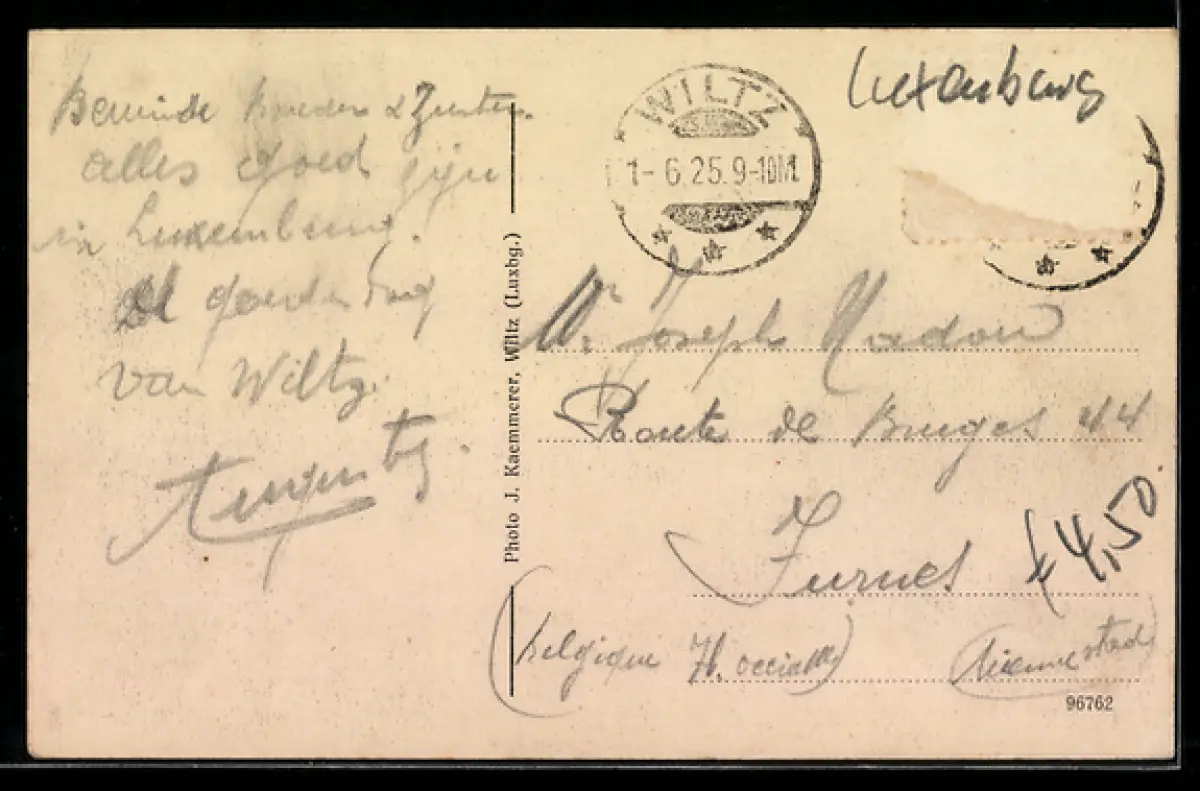 Beminde Broeder & Zuster.
alles goed zijn
in Luxemburg.
goeden dag
van Wiltz.
Photo J. Kaemmerer, Wiltz (Luxbg.)
WILTZ
1-6.25.9-10M.
Luxemburg
Mr Joseph Madou
Route de Bruges 44
Furnes
(Belgique Fl. occidle)
4,50
96762